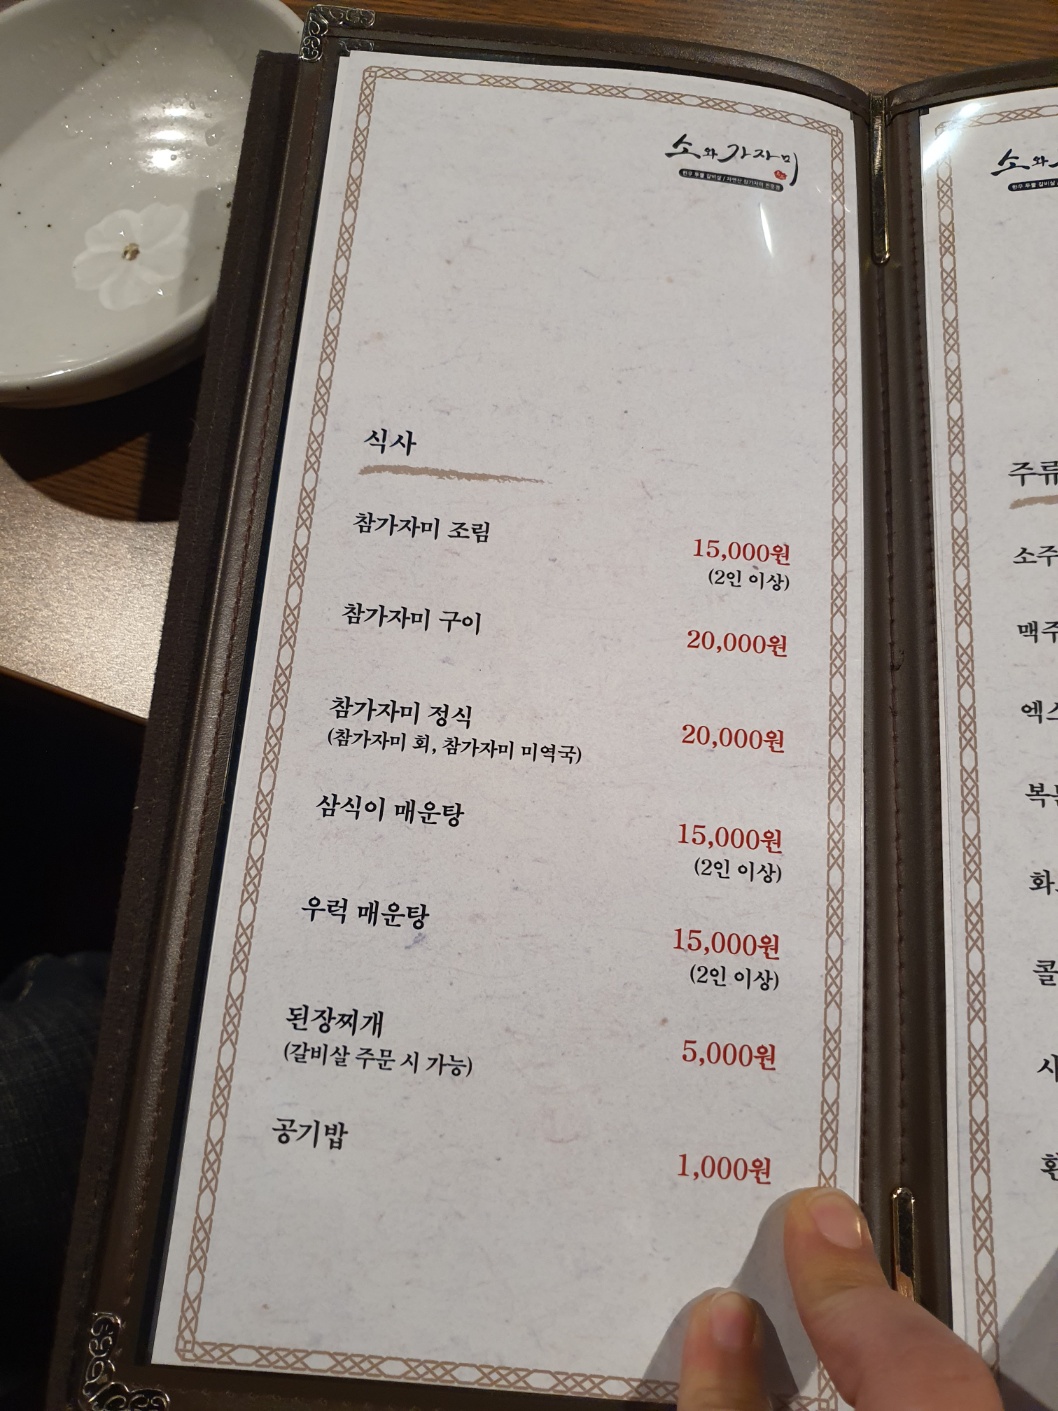 소와가자미
식사
참가자미 조림
15,000원
(2인 이상)
참가자미 구이
20,000원
참가자미 정식
(참가자미 회, 참가자미 미역국)
20,000원
삼식이 매운탕
15,000원
(2인 이상)
우럭 매운탕
15,000원
(2인 이상)
된장찌개
(갈비살 주문 시 가능)
5,000원
공기밥
1,000원
소와
주류
소주
맥주
콜